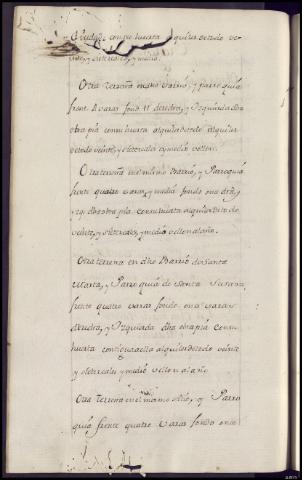 con su huerta alquiler de todo ve-
inte, y siete reales, y medio.
Otra terreña en dho Varrio, y Parroquia
frente 4 varas fondo 11 derecha, y Izquierda dha
obra pia con su huerta alquiler de todo
veinte, y siete reales, y medio vellon.
Otra terreña en el mismo Barrio, y Parroquia
frente quatro varas, y media fondo once dra, y
izq dha obra pia con su huerta alquiler de todo
veinte, y siete reales, y medio vellon al año.
Otra terrena en dho Barrio de Santa
Marta, y Parroquia de Santa Susana
frente quatro varas fondo once varas
derecha, y Izquierda dha obra pia con su
huerta alquiler de todo veinte
y siete reales y medio vellon al año
Otra terreña en el mismo sitio, y Parro
quia frente quatro varas fondo once